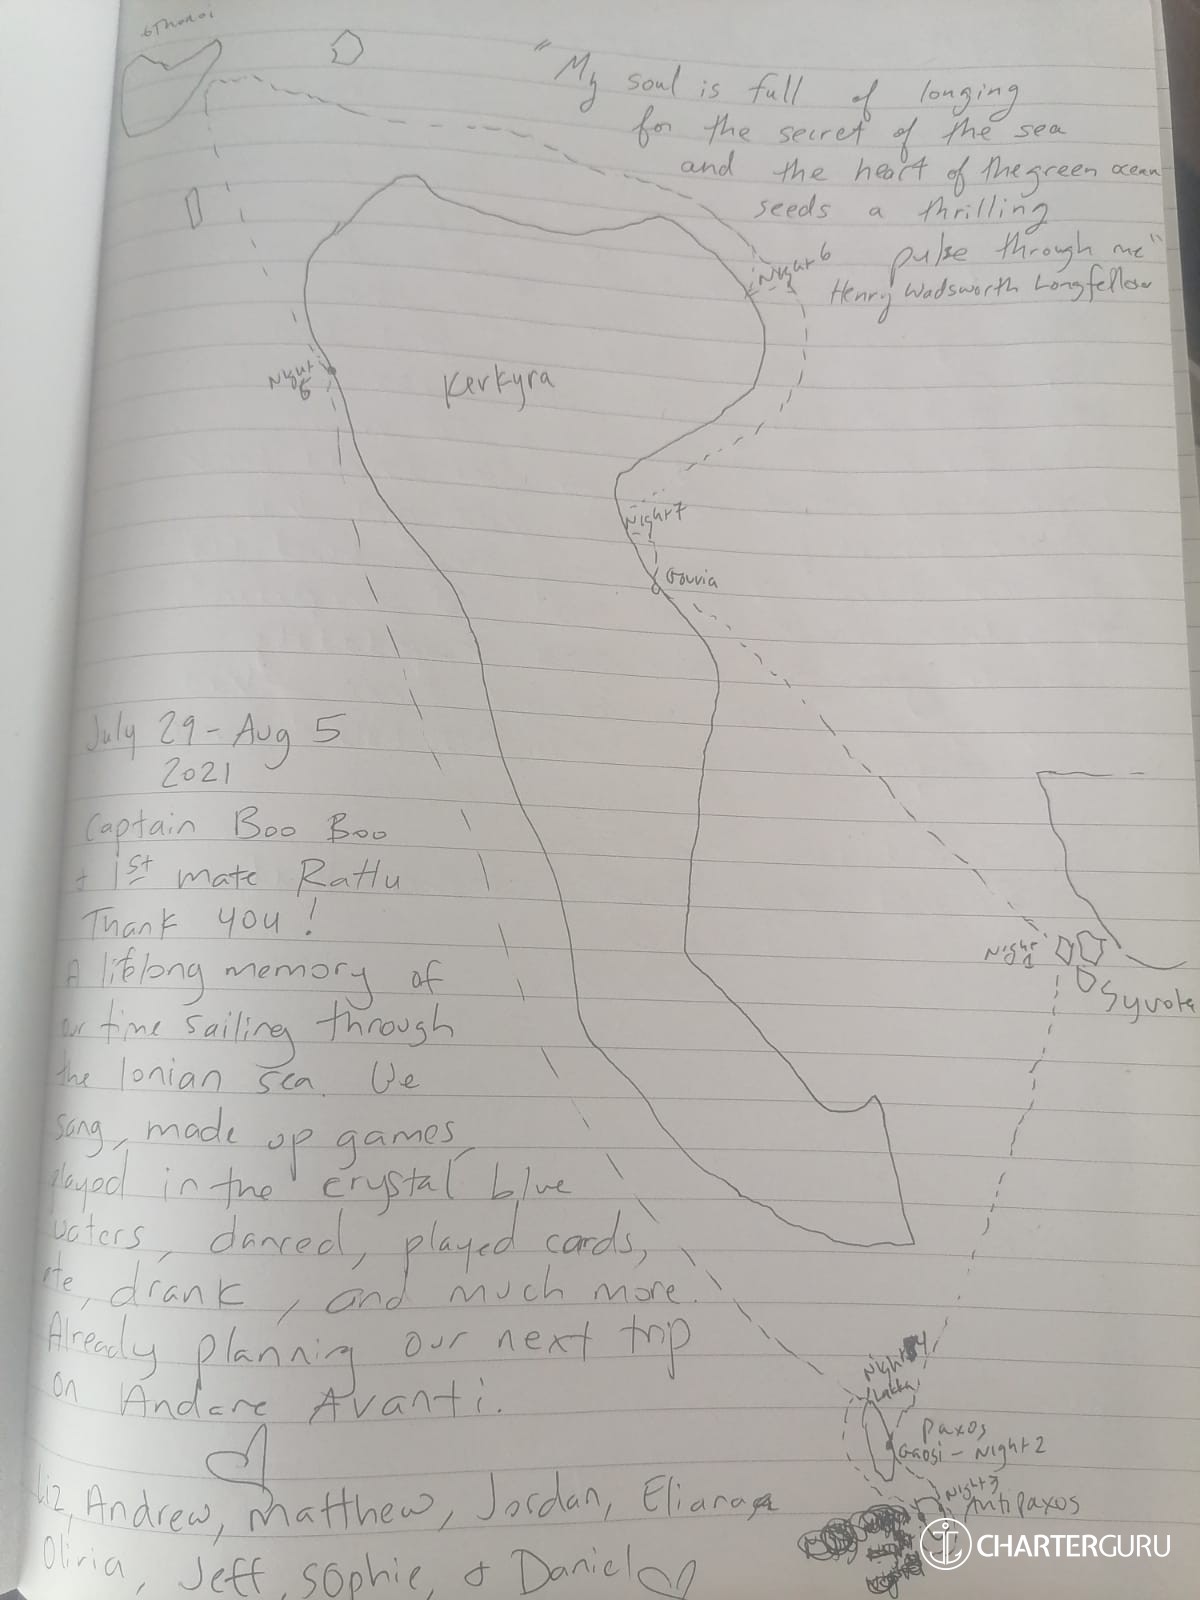 "My soul is full of longing
for the secret of the sea
and the heart of the green ocean
seeds a thrilling
pulse through me"
Henry Wadsworth Longfellow
Night 6
Night 5
Kerkyra
Night 7
Gouvia
July 29 - Aug 5
2021
Captain Boo Boo
+ 1st mate
Thank you!
A lifelong memory of
our time sailing through
the Ionian Sea. We
sang, made up games,
played in the crystal blue
waters, danced, played cards,
ate, drank, and much more.
Already planning our next trip
on Andare Avanti.
Liz, Andrew, Matthew, Jordan, Eliana
Olivia, Jeff, Sophie, & Daniel
Night 1
Syvota
Night 4
Lakka
Paxos
Gaosi - Night 2
Night 3
Antipaxos
CHARTERGURU